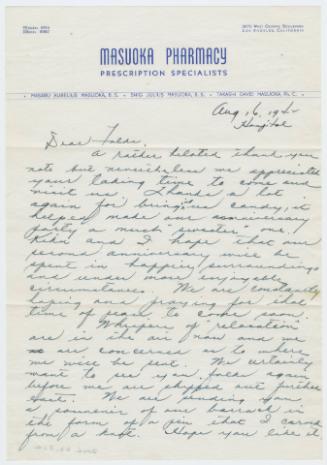 MASUOKA PHARMACY
PRESCRIPTION SPECIALISTS
• MASARU AURELIUS MASUOKA, B.S. • SHIG JULIUS MASUOKA, B.S. • TAKASHI DAVID MASUOKA, PH.C. •
Aug 16, 194
Hospital
Dear Folks,
A rather belated thank you
note but nevertheless we appreciate
your taking time to come and
visit us. Thanks a lot
again for bringing us candy, it
helped made our anniversary
party a much "sweeter" one.
and I hope that our
second anniversary will be
spent in happier surroundings
and under more enjoyable
circumstances. We are constantly
hoping and praying for that
time of peace to come soon.
Whispers of "relocation"
are in the air now and we
are concerned as to where
we will be sent. We certainly
want to see you folks again
before we are shipped out further
East. We are sending you
a souvenir of our barrack in
the form of a pin that I carved
from a knot. Hope you like it